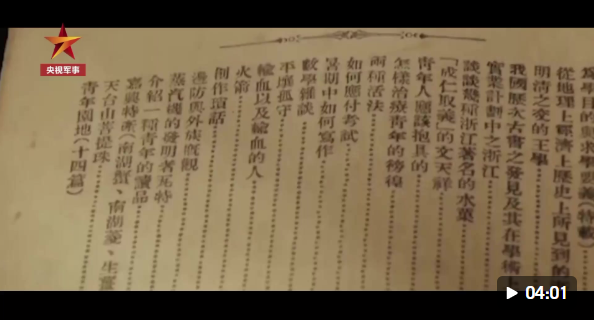 央视军事
為學目的與求學要義(特載)
從地理上鄒濟上歷史上所見到的
明清之交的王學
我國歷次古書之發見及其在學術上
實業計劃中之浙江
談談幾種浙江著名的水菓
「成仁取義」的文天祥
青年人應該抱具的
怎樣治療青年的徬徨
兩種活法
如何應付考試
暑期中如何寫作
數學雜談
平壤孤守
輸血以及輸血的人
火箭
創作瑣話
邊防與外族概觀
蒸汽機的發明者瓦特
介紹一種青年的讀品
嘉興特產(南湖蟹、南湖菱、生薑
天台山菩提珠
青年園地(十四篇)
04:01